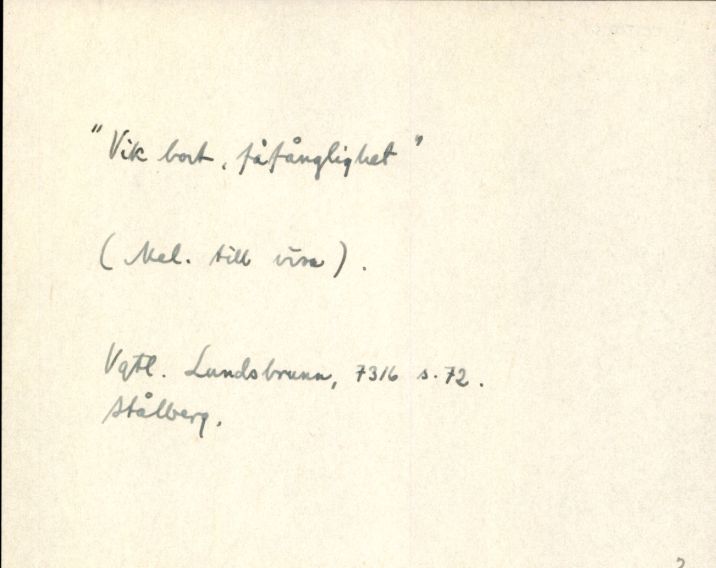 "Vik bort, fåfänglighet"
(Mel. till visa).
Vgtl. Lundsbrunn, 7316 s. 72.
Stålberg.
2